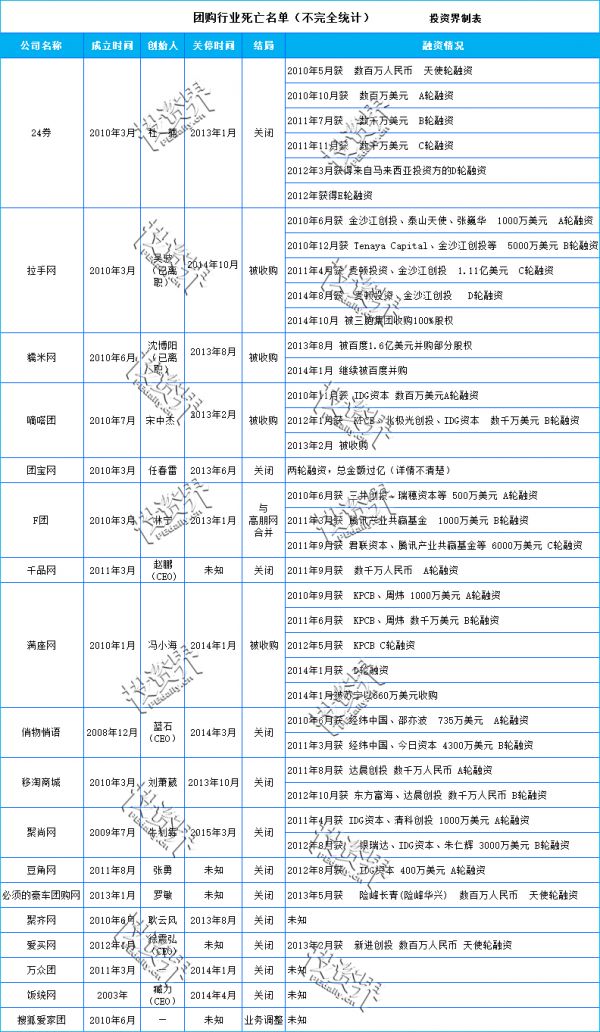 团购行业死亡名单（不完全统计） 投资界制表
公司名称 成立时间 创始人 关停时间 结局 融资情况
24券 2010年3月 杜一楠 2013年1月 关闭
2010年5月获 数百万人民币 天使轮融资
2010年10月获 数百万美元 A轮融资
2011年7月获 数千万美元 B轮融资
2011年11月获 数千万美元 C轮融资
2012年3月获得来自马来西亚投资方的D轮融资
2012年获得E轮融资
拉手网 2010年3月 吴波（已离职） 2014年10月 被收购
2010年6月获 金沙江创投、泰山天使、张巍华 1000万美元 A轮融资
2010年12月获 Tenaya Capital、金沙江创投等 5000万美元 B轮融资
2011年4月获 麦顿投资、金沙江创投 1.11亿美元 C轮融资
2014年8月获 麦顿投资、金沙江创投 D轮融资
2014年10月 被三胞集团收购100%股权
糯米网 2010年6月 沈博阳（已离职） 2013年8月 被收购
2013年8月 被百度1.6亿美元并购部分股权
2014年1月 继续被百度并购
嘀嗒团 2010年7月 宋中杰 2013年2月 被收购
2010年11月获 IDG资本 数百万美元A轮融资
2012年1月获 KPCB、北极光创投、IDG资本 数千万美元 B轮融资
2013年2月 被收购
团宝网 2010年3月 任春雷 2013年6月 关闭 两轮融资，总金额过亿（详情不清楚）
F团 2010年3月 林宁 2013年1月 与高朋网合并
2010年6月获 三井创投、瑞穗资本等 500万美元 A轮融资
2011年3月获 腾讯产业共赢基金 1000万美元 B轮融资
2011年9月获 君联资本、腾讯产业共赢基金等 6000万美元 C轮融资
千品网 2011年3月 赵鹏（CEO） 未知 关闭 2011年9月获 数千万人民币 A轮融资
满座网 2010年1月 冯小海 2014年1月 被收购
2010年9月获 KPCB、周炜 1000万美元 A轮融资
2011年6月获 KPCB、周炜 数千万美元 B轮融资
2012年5月获 KPCB C轮融资
2014年1月获 D轮融资
2014年1月被苏宁以660万美元收购
俏物悄语 2008年12月 墓石（CEO） 2014年3月 关闭
2010年6月获 经纬中国、邵亦波 735万美元 A轮融资
2011年3月获 经纬中国、今日资本 4300万美元 B轮融资
移淘商城 2010年3月 刘萧葳 2013年10月 关闭
2011年8月获 达晨创投 数千万人民币 A轮融资
2012年10月获 东方富海、达晨创投 数千万人民币 B轮融资
聚尚网 2009年7月 2015年3月 关闭
2011年4月获 IDG资本、清科创投 1000万美元 A轮融资
2012年8月获 银瑞达、IDG资本、朱仁辉 3000万美元 B轮融资
豆角网 2011年8月 张勇 未知 关闭 2012年8月获 IDG资本 400万美元 A轮融资
必须的豪车团购网 2013年1月 罗敏 未知 关闭 2013年5月获 险峰长青(险峰华兴) 数百万人民币 天使轮融资
聚齐网 2010年6月 耿云风 2013年8月 关闭 未知
爱买网 2012年4月 徐震弘（CEO） 未知 关闭 2013年2月获 新进创投 数百万人民币 天使轮融资
万众团 2011年3月 — 2014年1月 关闭 未知
饭统网 2003年 臧力（CEO） 2014年4月 关闭 未知
搜狐爱家团 2010年6月 — 未知 业务调整 未知